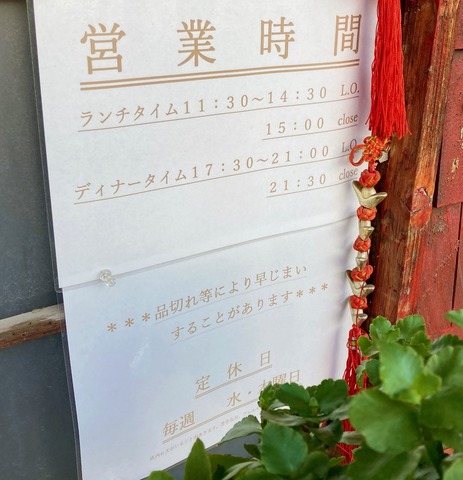 営業時間
ランチタイム11：30～14：30 L.O.
15：00 close
ディナータイム17：30～21：00 L.O.
21：30 close
＊＊＊品切れ等により早じまい
することがあります＊＊＊
定休日
毎週 水・木曜日